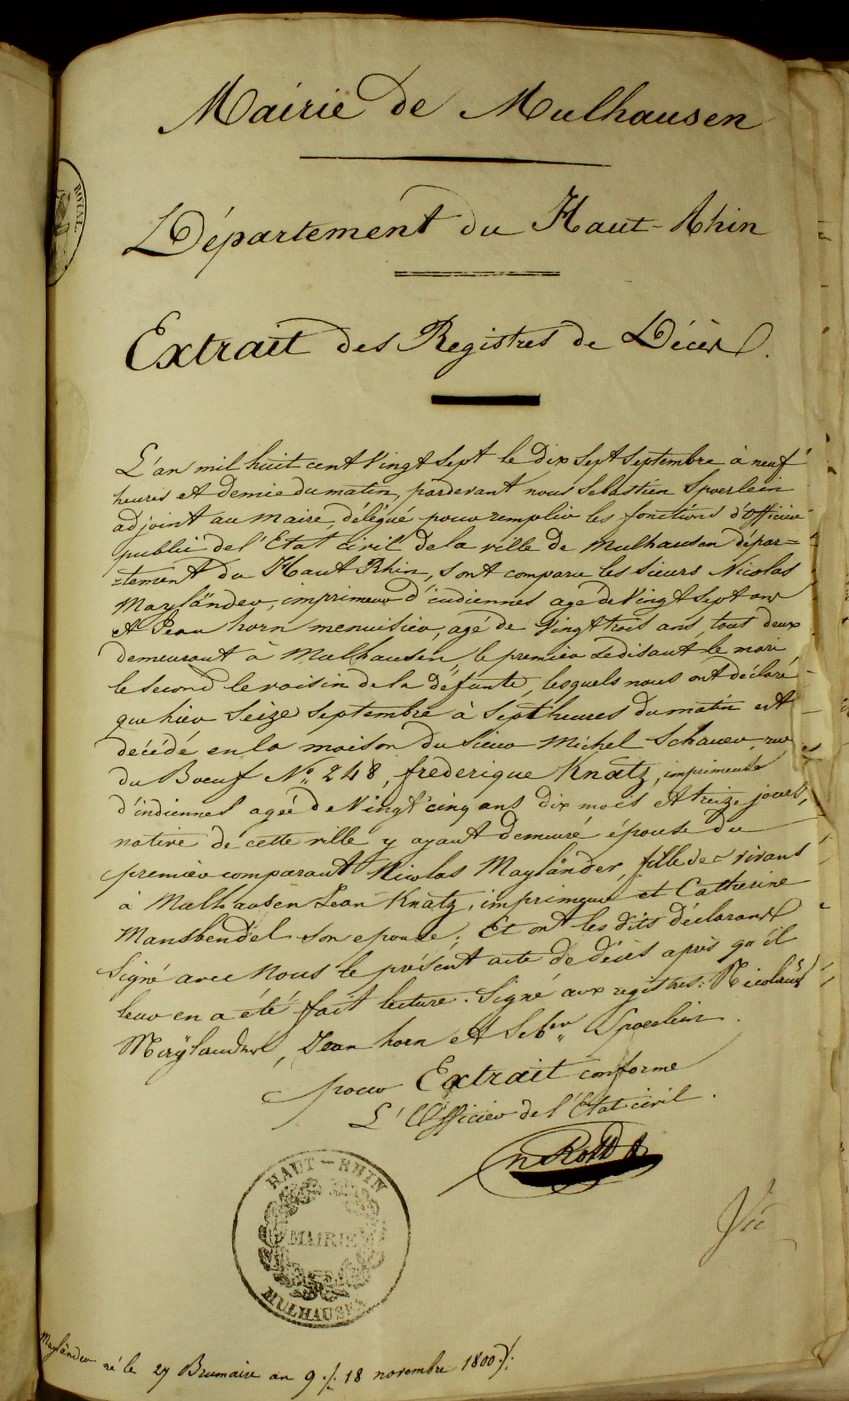 Mairie de Mulhausen
Département du Haut-Rhin
Extrait des Registres de Décès.
ROYAL.
L'an mil huit cent Vingt Sept le dix Sept Septembre à neuf
heures et demie du matin, pardevant nous Sebastien Spoerlein
adjoint au maire, délégué pour remplir les fonctions d'Officier
public de l'Etat civil de la ville de Mulhausen dépar=
=tement du Haut Rhin, sont comparu les sieurs Nicolas
Mayländer, imprimeur d'indiennes agé de Vingt Sept ans
et Jean horn menuisier, agé de Vingt trois ans, tout deux
demeurant à Mulhausen, le premier se disant le mari
le second le voisin de la défunte, lesquels nous ont déclaré
que hier Seize Septembre à Sept heures du matin est
décédé en la maison du Sieur Michel Schauer, rue
du Boeuf N° 248, frederique Knatz, imprimeuse
d'indiennes ageé de Vingt cinq ans dix mois et treize jours,
native de cette ville y ayant demeuré épouse du
premier comparant Nicolas Mayländer, fille des vivans
à Mulhausen Jean Knatz, imprimeur et Catherine
Mansbendel son epouse; Et ont les dits déclarans
Signé avec Nous le présent acte de décès après qu'il
leur en a été fait lecture. Signé aux registres: Nicolaus
Meÿlander, Jean horn et Seb.en Spoerlein.
pour Extrait conforme
L'Officier de l'Etat civil.
HAUT-RHIN
MAIRIE
MULHAUSEN
Mayländer né le 27 Brumaire an 9 ./. 18 novembre 1800 ./.